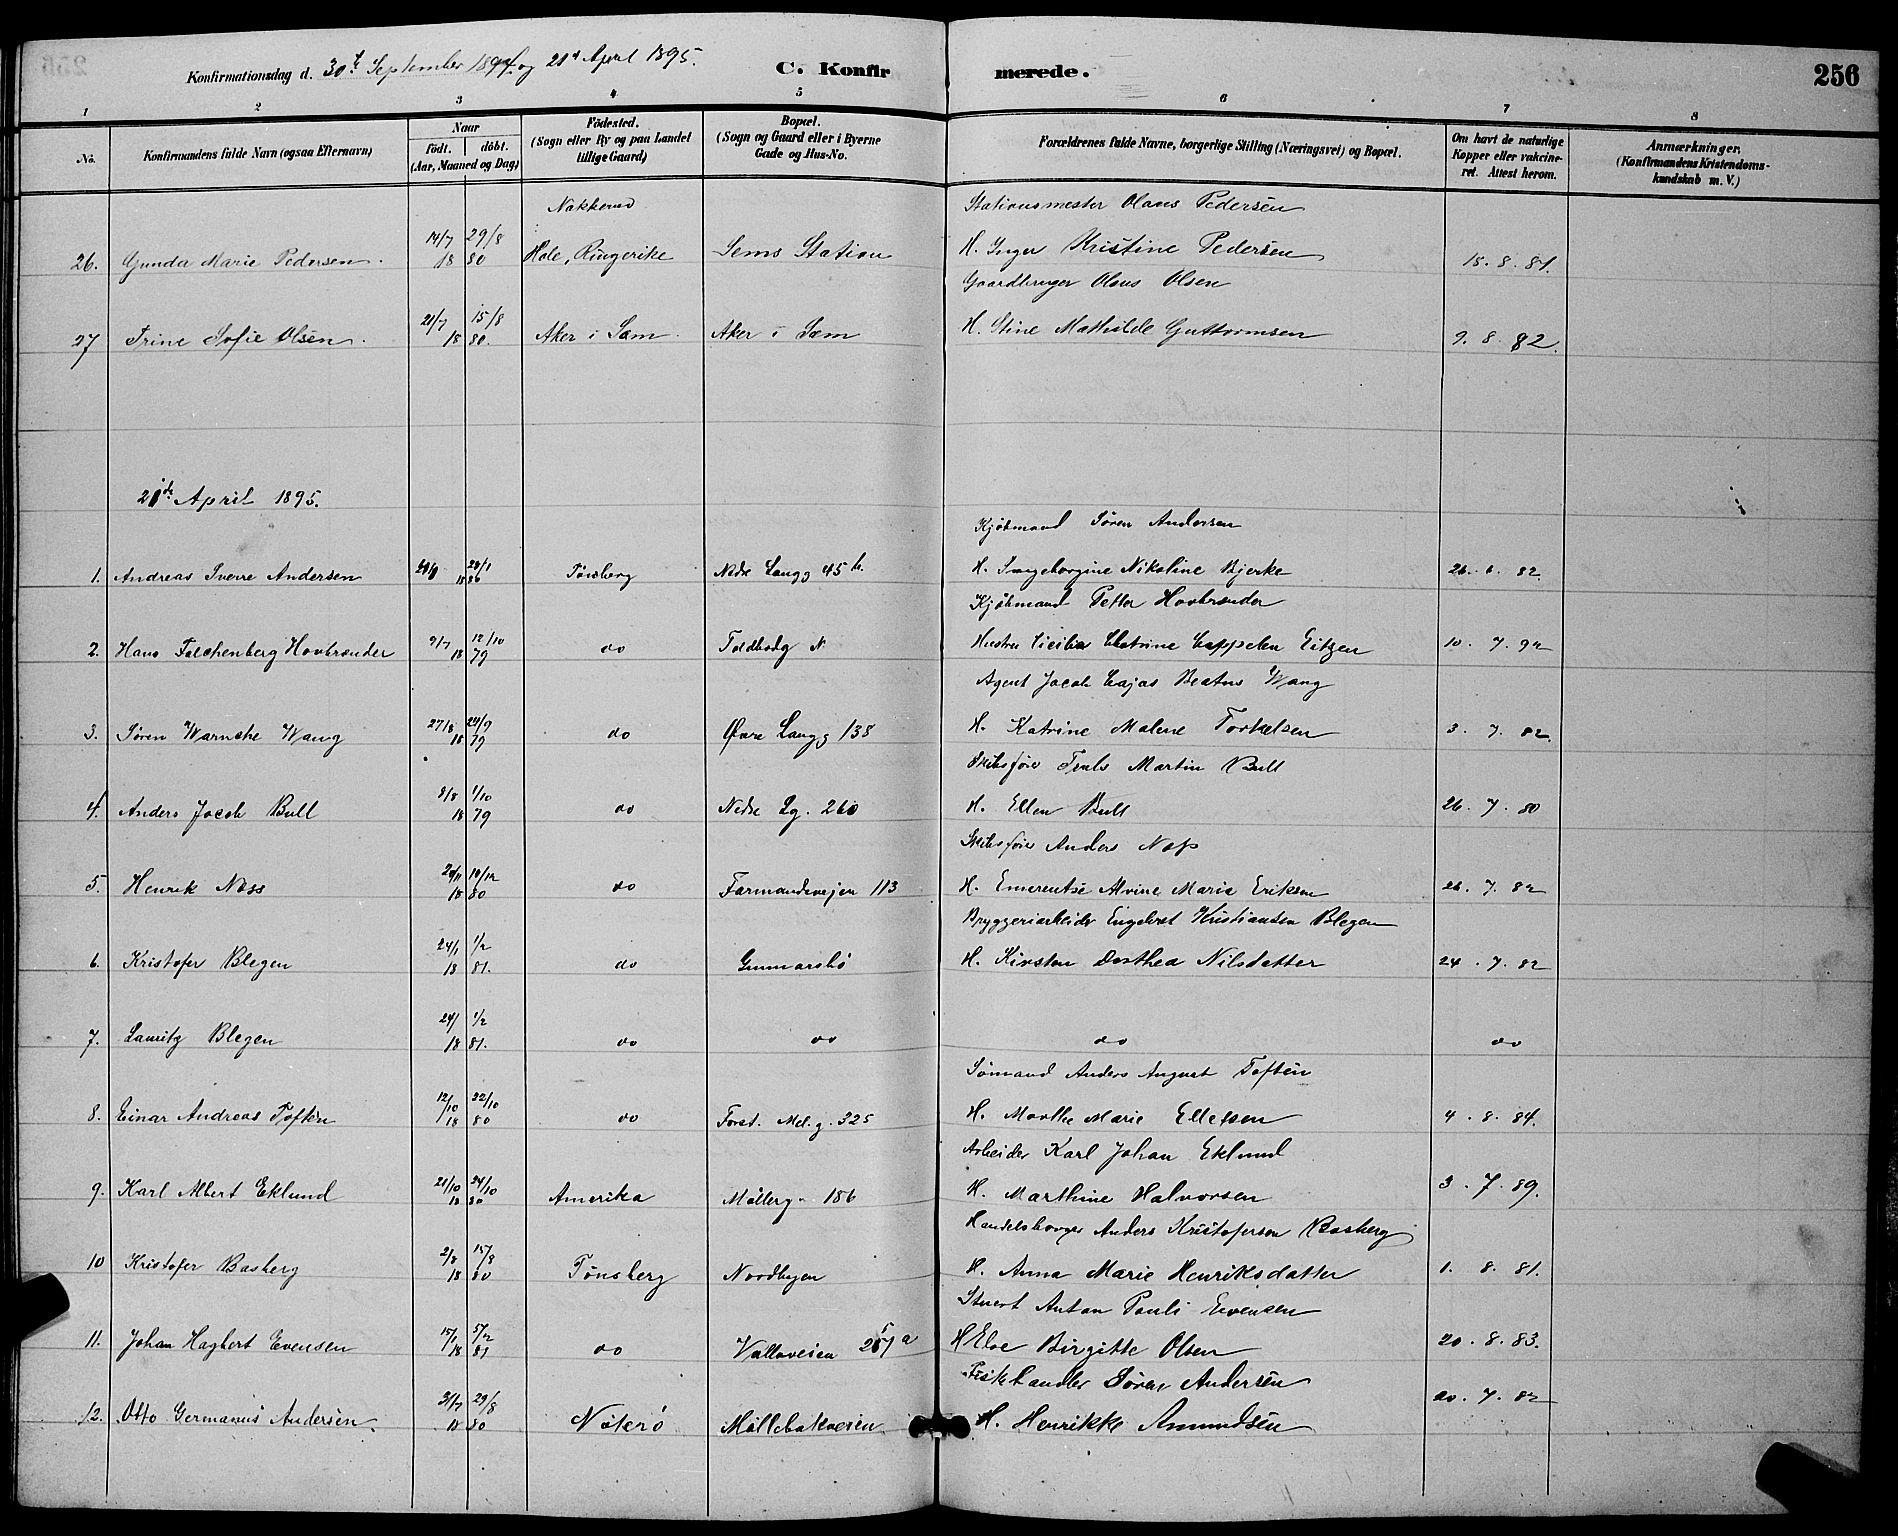 Konfirmationsdag d. 30te September 1894 og 21de April 1895.
C. Konfirmerede.
256
1 2 3 4 5 6 7 8
No.
Konfirmandens fulde Navn (ogsaa Efternavn)
Naar
födt. döbt.
(Aar, Maaned og Dag)
Födested.
(Sogn eller By og paa Landet
tillige Gaard)
Bopæl.
(Sogn og Gaard eller i Byerne
Gade og Hus-No.
Forældrenes fulde Navne, borgerlige Stilling (Næringsvei) og Bopæl.
Om havt de naturlige
Kopper eller vakcine-
ret. Attest herom.
Anmærkninger.
(Konfirmandens Kristendoms-
kundskab m. V.)
Nakkerud Stationsmester Olaus Pedersen
26. Gunda Marie Pedersen 14/7 29/8 18 80 Hole, Ringerike Sems Station H. Inger Kristine Pedersen 15. 8. 81.
Gaardbruger Olaus Olsen
27 Trine Sofie Olsen 21/7 15/8 18 80. Aker i Sæm Aker i Sæm H. Stine Mathilde Guttormsen 9. 8. 82.
21de April 1895.
Kjöbmand Sören Andersen
1. Andreas Sverre Andersen Tönsberg Nedre Langg 45 b. H. Ingeborgine Nikoline Bjerke 26. 6. 82.
Kjöbmand Petter Hovbrender
2. Hans Falchenberg Hovbrender 9/7 12/10 18 79 do Toldbodg N H Hustru Cicilia Catrine Cappelen Eitzen 10. 7. 92
Agent Jacob Cajas Beatus Wang
3. Sören Warncke Wang 27/8 28/9 18 79 do Øvre Langg 138 H. Katrine Malene Torkelsen 3. 7. 82.
Skibsförer Truls Martin Bull
4. Anders Jacob Bull 8/8 1/10 18 79 do Nedre Lg. 260 H. Ellen Bull 26. 7. 80
Skibsförer Anders Næss
5. Henrik Næss 18 80 do Farmandsvejen 113 H. Emerentse Alvine Marie Eriksen 26. 7. 82
Bryggeriarbeider Engebret Kristiansen Blegen
6. Kristofer Blegen 24/1 1/2 18 81. do Gunnarsbö H. Kirsten Dorthea Nilsdatter 24. 7. 82
7. Lauritz Blegen 24/1 1/2 18 81. do do do do
Sömand Anders August Toften
8. Einar Andreas Toften 12/10 22/10 18 80 do Forst. Mel. g. 325 H. Marthe Marie Ellefsen 4. 8. 84.
Arbeider Karl Johan Eklund
9. Karl Albert Eklund 21/10 24/10 18 80 Amerika Möllerg. 186 H. Marthine Halvorsen 3. 7. 89.
Handelsborger Anders Kristofersen Basberg
10 Kristofer Basberg 2/8 15/8 18 80 Tönsberg Nordbyen H. Anna Marie Henriksdatter 1. 8. 81.
Stuert Anton Pauli Evensen
11. Johan Hagbert Evensen 15/1 5/2 18 81 do Valløveien H Elve Birgitte Olsen 20. 8. 83.
Fiskehandler Sören Andersen
12. Otto Germanus Andersen 31/7 29/8 18 80 Nöterö Möllebakveien H. Henrikke Amundsen 20. 7. 82